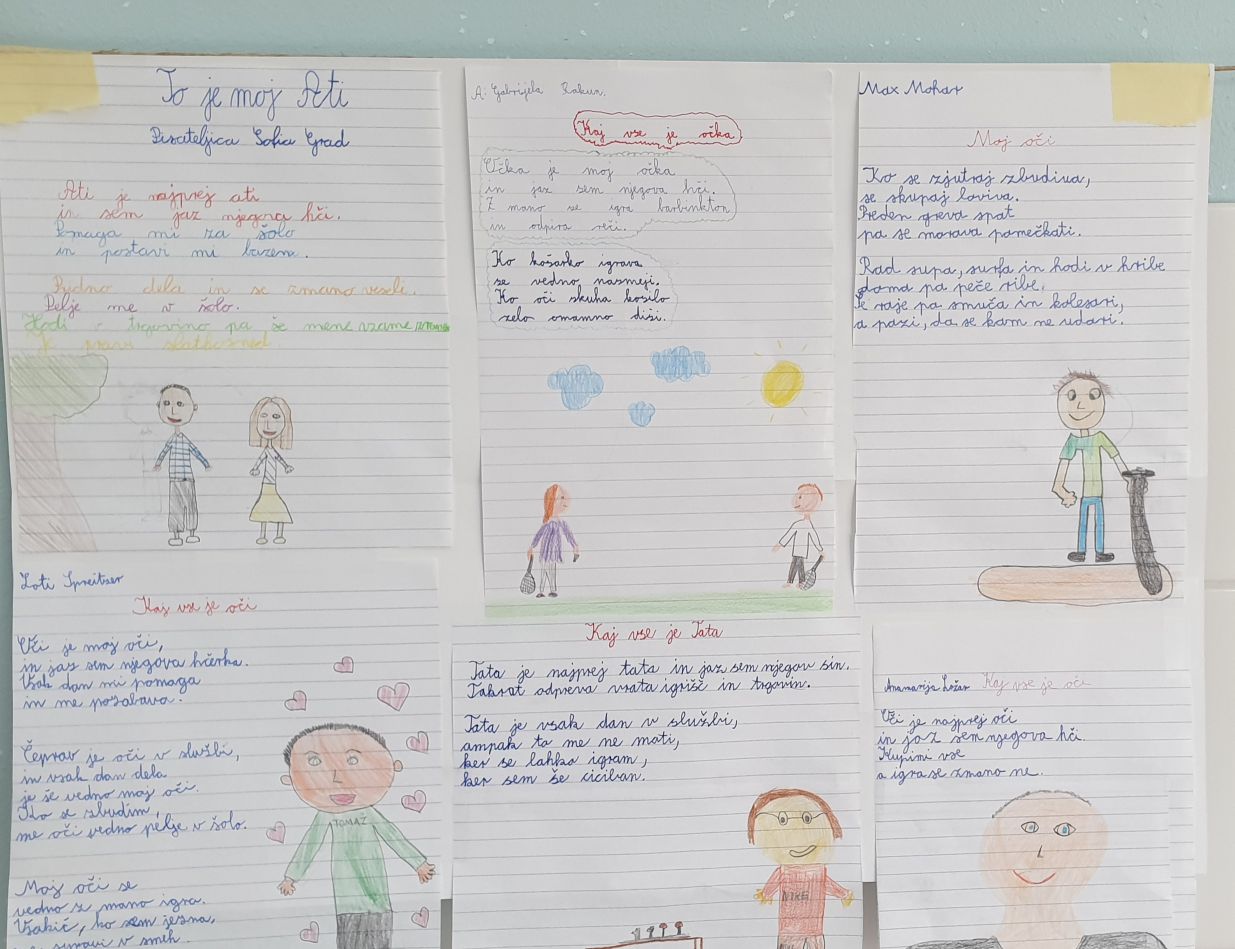 To je moj Ati
Pisateljica Sofia Grad
Ati je najprej ati
in sem jaz njegova hči.
Pomaga mi za šolo
in postavi mi bazen.
Pridno dela in se zmano veseli.
Pelje me v šolo.
Hodi v trgovino pa še mene vzame
A: Gabrijela Rakun,
Kaj vse je očka
Očka je moj očka
in jaz sem njegova hči.
Z mano se igra barbinkton
in odpira reči.
Ko košarko igrava
se vedno nasmeji,
Ko oči skuha kosilo
zelo omamno diši.
Max Mohar
Moj oči
Ko se zjutraj zbudiva,
se skupaj loviva.
Preden greva spat
pa se morava pomečkati.
Rad supa, surfa in hodi v hribe
doma pa peče ribe.
Še raje pa smuča in kolesari,
a pazi, da se kam ne udari.
Loti Spreitzer
Kaj vse je oči
Oči je moj oči,
in jaz sem njegova hčerka.
Vsak dan mi pomaga
in me pozabava.
Čeprav je oči v službi,
in vsak dan dela
je še vedno moj oči.
Ko se zbudim,
me oči vedno pelje v šolo.
Moj oči se
vedno z mano igra.
Vsakič, ko sem jezna,
spravi v smeh.
TOMAŽ
Kaj vse je Tata
Tata je najprej tata in jaz sem njegov sin.
Takrat odpreva vrata igrišč in trgovin.
Tata je vsak dan v službi,
ampak to me ne moti,
ker se lahko igram,
ker sem še ciciban.
NIKE
Anamarija Ložar
Kaj vse je oči
Oči je najprej oči
in jaz sem njegova hči.
Kupi mi vse
a igra se zmano ne.